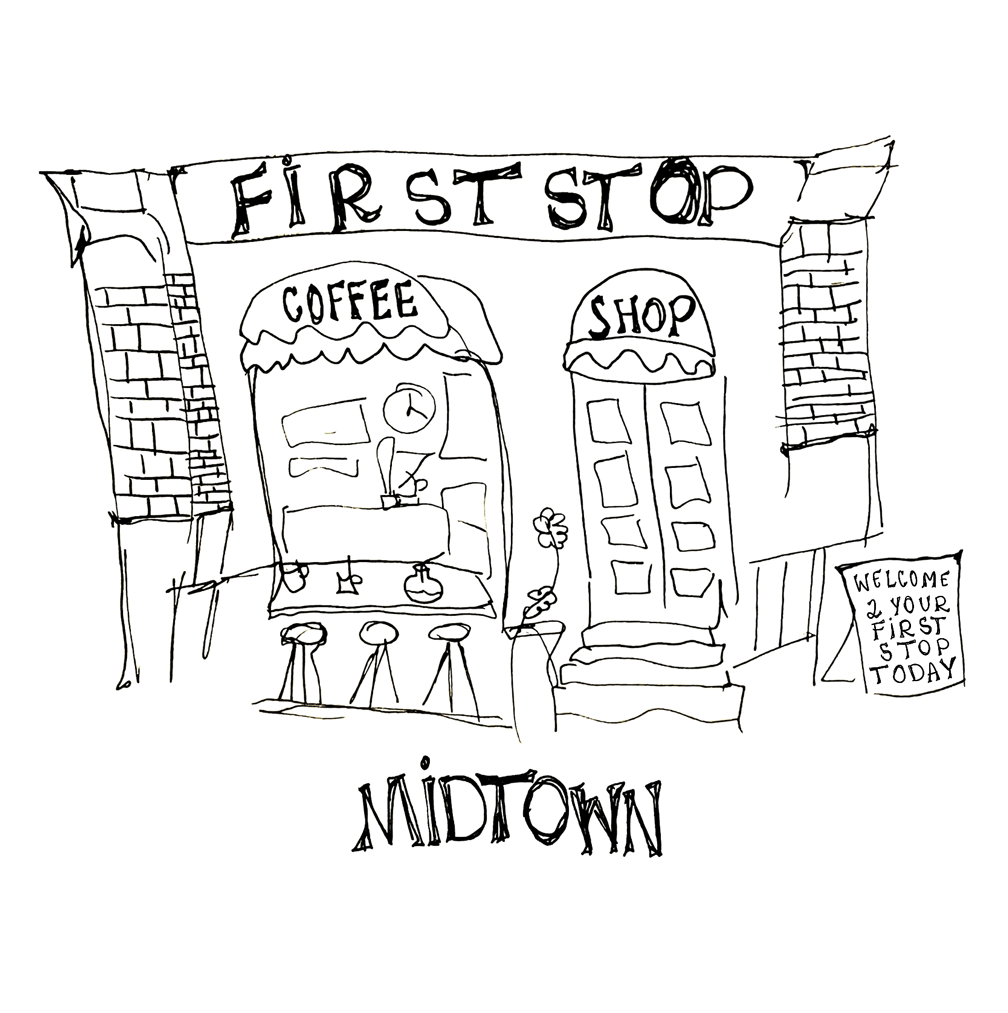 FiRST STOP
COFFEE
SHOP
WELCOME
2 YOUR
FiRST
STOP
TODAY
MiDTOWN